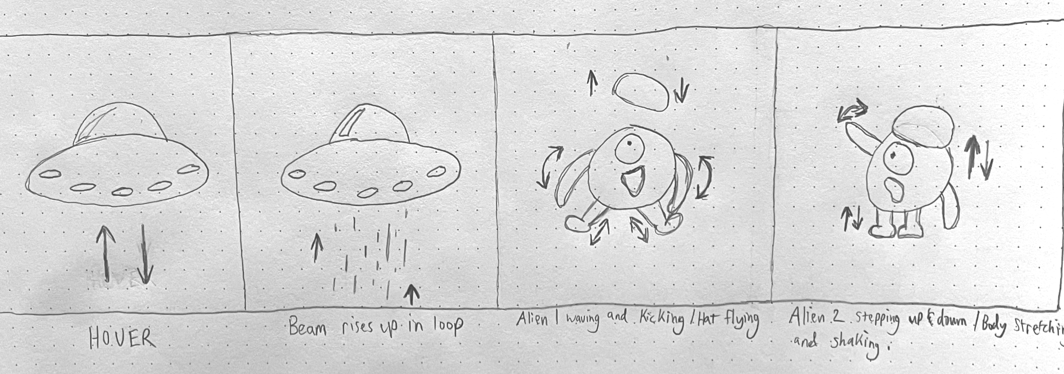 HOVER
Beam rises up in loop
Alien 1 waving and kicking / Hat flying
Alien 2 stepping up & down / Body stretchin
and shaking.